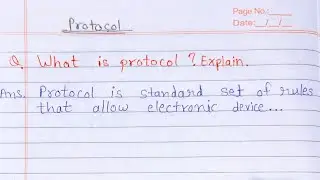 Page No.:
Date: / /
Protocol
Q. What is protocol? Explain.
Ans. Protocol is standard set of rules
that allow electronic device...